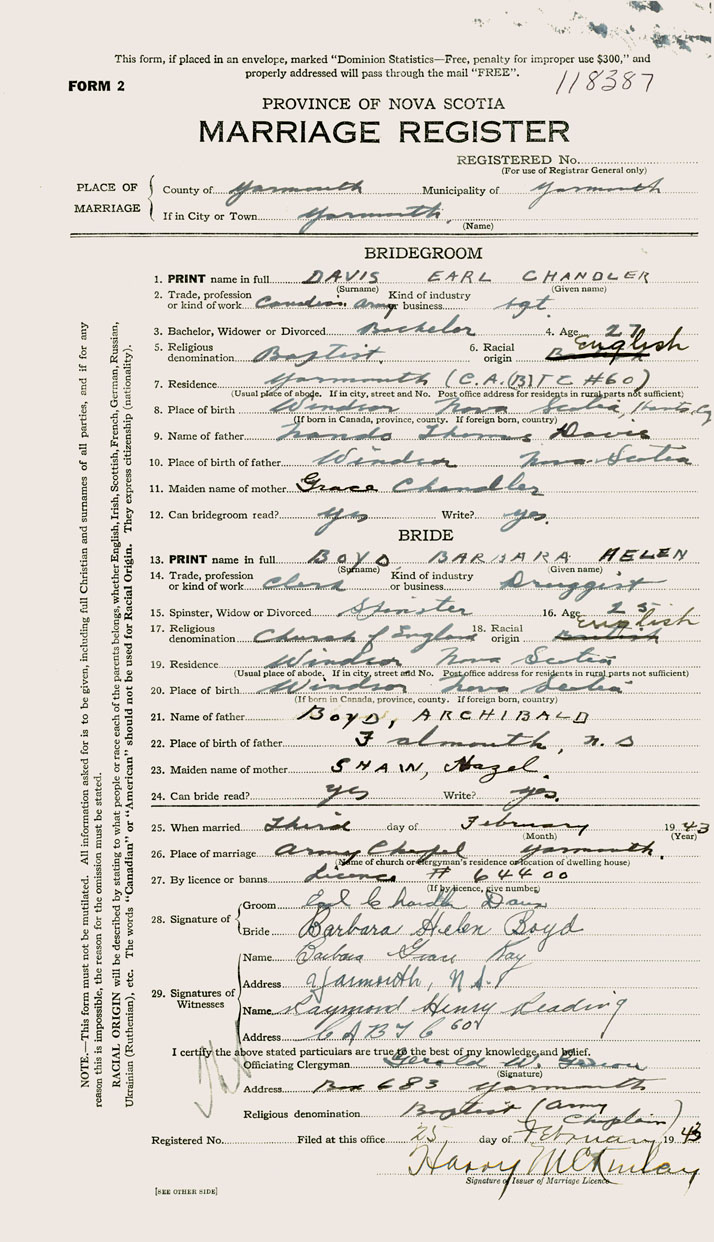 This form, if placed in an envelope, marked "Dominion Statistics—Free, penalty for improper use $300," and
properly addressed will pass through the mail "FREE".
FORM 2
118387
PROVINCE OF NOVA SCOTIA
MARRIAGE REGISTER
REGISTERED No.
(For use of Registrar General only)
PLACE OF MARRIAGE
County of Yarmouth Municipality of Yarmouth
If in City or Town Yarmouth
(Name)
BRIDEGROOM
1. PRINT name in full DAVIS EARL CHANDLER
(Surname) (Given name)
2. Trade, profession or kind of work Canadian Army Kind of industry or business Sgt
3. Bachelor, Widower or Divorced Bachelor 4. Age 27
5. Religious denomination Baptist 6. Racial origin English
7. Residence Yarmouth (C.A.(B)TC #60)
(Usual place of abode. If in city, street and No. Post office address for residents in rural parts not sufficient)
8. Place of birth Windsor Nova Scotia, Hants Co
(If born in Canada, province, county. If foreign born, country)
9. Name of father Thomas Davis
10. Place of birth of father Windsor Nova Scotia
11. Maiden name of mother Grace Chandler
12. Can bridegroom read? yes Write? yes.
BRIDE
13. PRINT name in full BOYD BARBARA HELEN
(Surname) (Given name)
14. Trade, profession or kind of work Clerk Kind of industry or business Druggist
15. Spinster, Widow or Divorced Spinster 16. Age 23
17. Religious denomination Church of England 18. Racial origin British English
19. Residence Windsor Nova Scotia
(Usual place of abode. If in city, street and No. Post office address for residents in rural parts not sufficient)
20. Place of birth Windsor Nova Scotia
(If born in Canada, province, county. If foreign born, country)
21. Name of father BOYD, ARCHIBALD
22. Place of birth of father Falmouth, N.S
23. Maiden name of mother SHAW, Hazel.
24. Can bride read? yes Write? yes.
25. When married Third day of February 1943
(Month) (Year)
26. Place of marriage Army Chapel Yarmouth.
(Name of church or clergyman's residence or location of dwelling house)
27. By licence or banns licence # 64400
(If by licence, give number)
28. Signature of
Groom Earl Davis
Bride Barbara Helen Boyd
29. Signatures of Witnesses
Name Barbara Grace Kay
Address Yarmouth, N.S.
Name Raymond Henry Reading
Address CABTC 60
I certify the above stated particulars are true to the best of my knowledge and belief.
Officiating Clergyman Gerald W.
(Signature)
Address Box 683 Yarmouth
Religious denomination Baptist (Army Chaplain)
Registered No. Filed at this office 25 day of February 1943
Harry McKinlay
Signature of Issuer of Marriage Licence
[SEE OTHER SIDE]
NOTE.—This form must not be mutilated. All information asked for is to be given, including full Christian and surnames of all parties, and if for any
reason this is impossible, the reason for the omission must be stated.
RACIAL ORIGIN will be described by stating to what people or race each of the parents belongs, whether English, Irish, Scottish, French, German, Russian,
Ukrainian (Ruthenian), etc. The words "Canadian" or "American" should not be used for Racial Origin. They express citizenship (nationality).